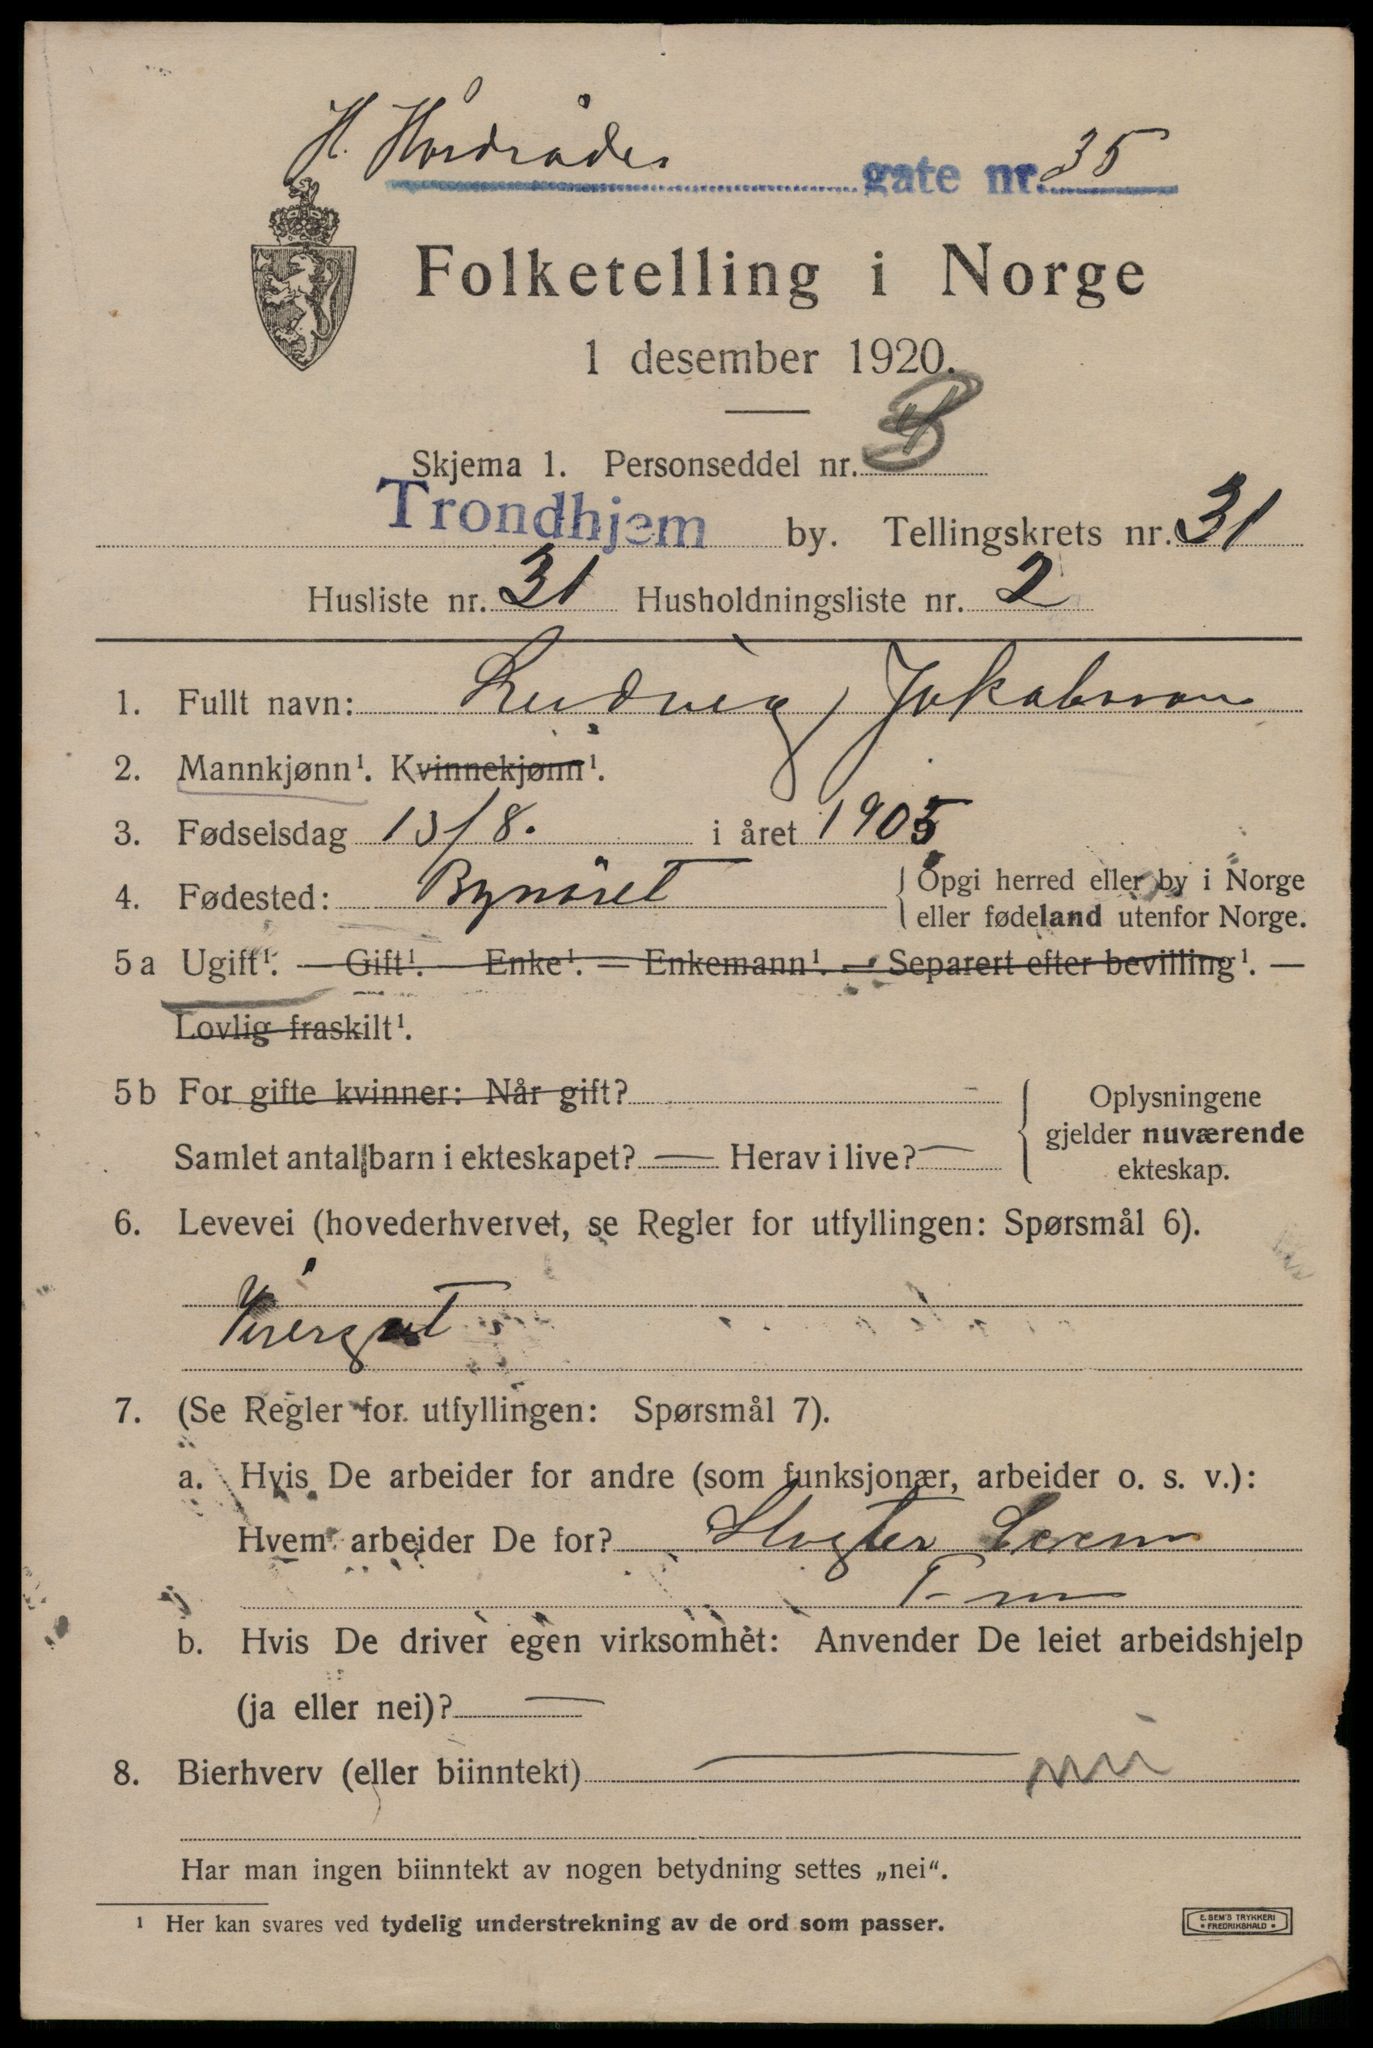 H. Hårdrådes gate nr. 35
Folketelling i Norge
1 desember 1920.
Skjema 1. Personseddel nr.
Trondhjem by. Tellingskrets nr. 31
Husliste nr. 31 Husholdningsliste nr. 2
1. Fullt navn: Ludvig Jakobsen
2. Mannkjønn¹. Kvinnekjønn¹.
3. Fødselsdag 13/8. i året 1905
4. Fødested: Bynæset { Opgi herred eller by i Norge
eller fødeland utenfor Norge.
5a Ugift¹. — Gift¹. — Enke¹. — Enkemann¹. — Separert efter bevilling¹. —
Lovlig fraskilt¹.
5b For gifte kvinner: Når gift? -
Samlet antal barn i ekteskapet? — Herav i live? —
{ Oplysningene
gjelder nuværende
ekteskap.
6. Levevei (hovederhvervet, se Regler for utfyllingen: Spørsmål 6).
Visergut
7. (Se Regler for utfyllingen: Spørsmål 7).
a. Hvis De arbeider for andre (som funksjonær, arbeider o. s. v.):
Hvem arbeider De for? Slagter
b. Hvis De driver egen virksomhet: Anvender De leiet arbeidshjelp
(ja eller nei)? —
8. Bierhverv (eller biinntekt) — nei
Har man ingen biinntekt av nogen betydning settes „nei“.
¹ Her kan svares ved tydelig understrekning av de ord som passer.
E. SEM'S TRYKKERI
* FREDRIKSHALD *